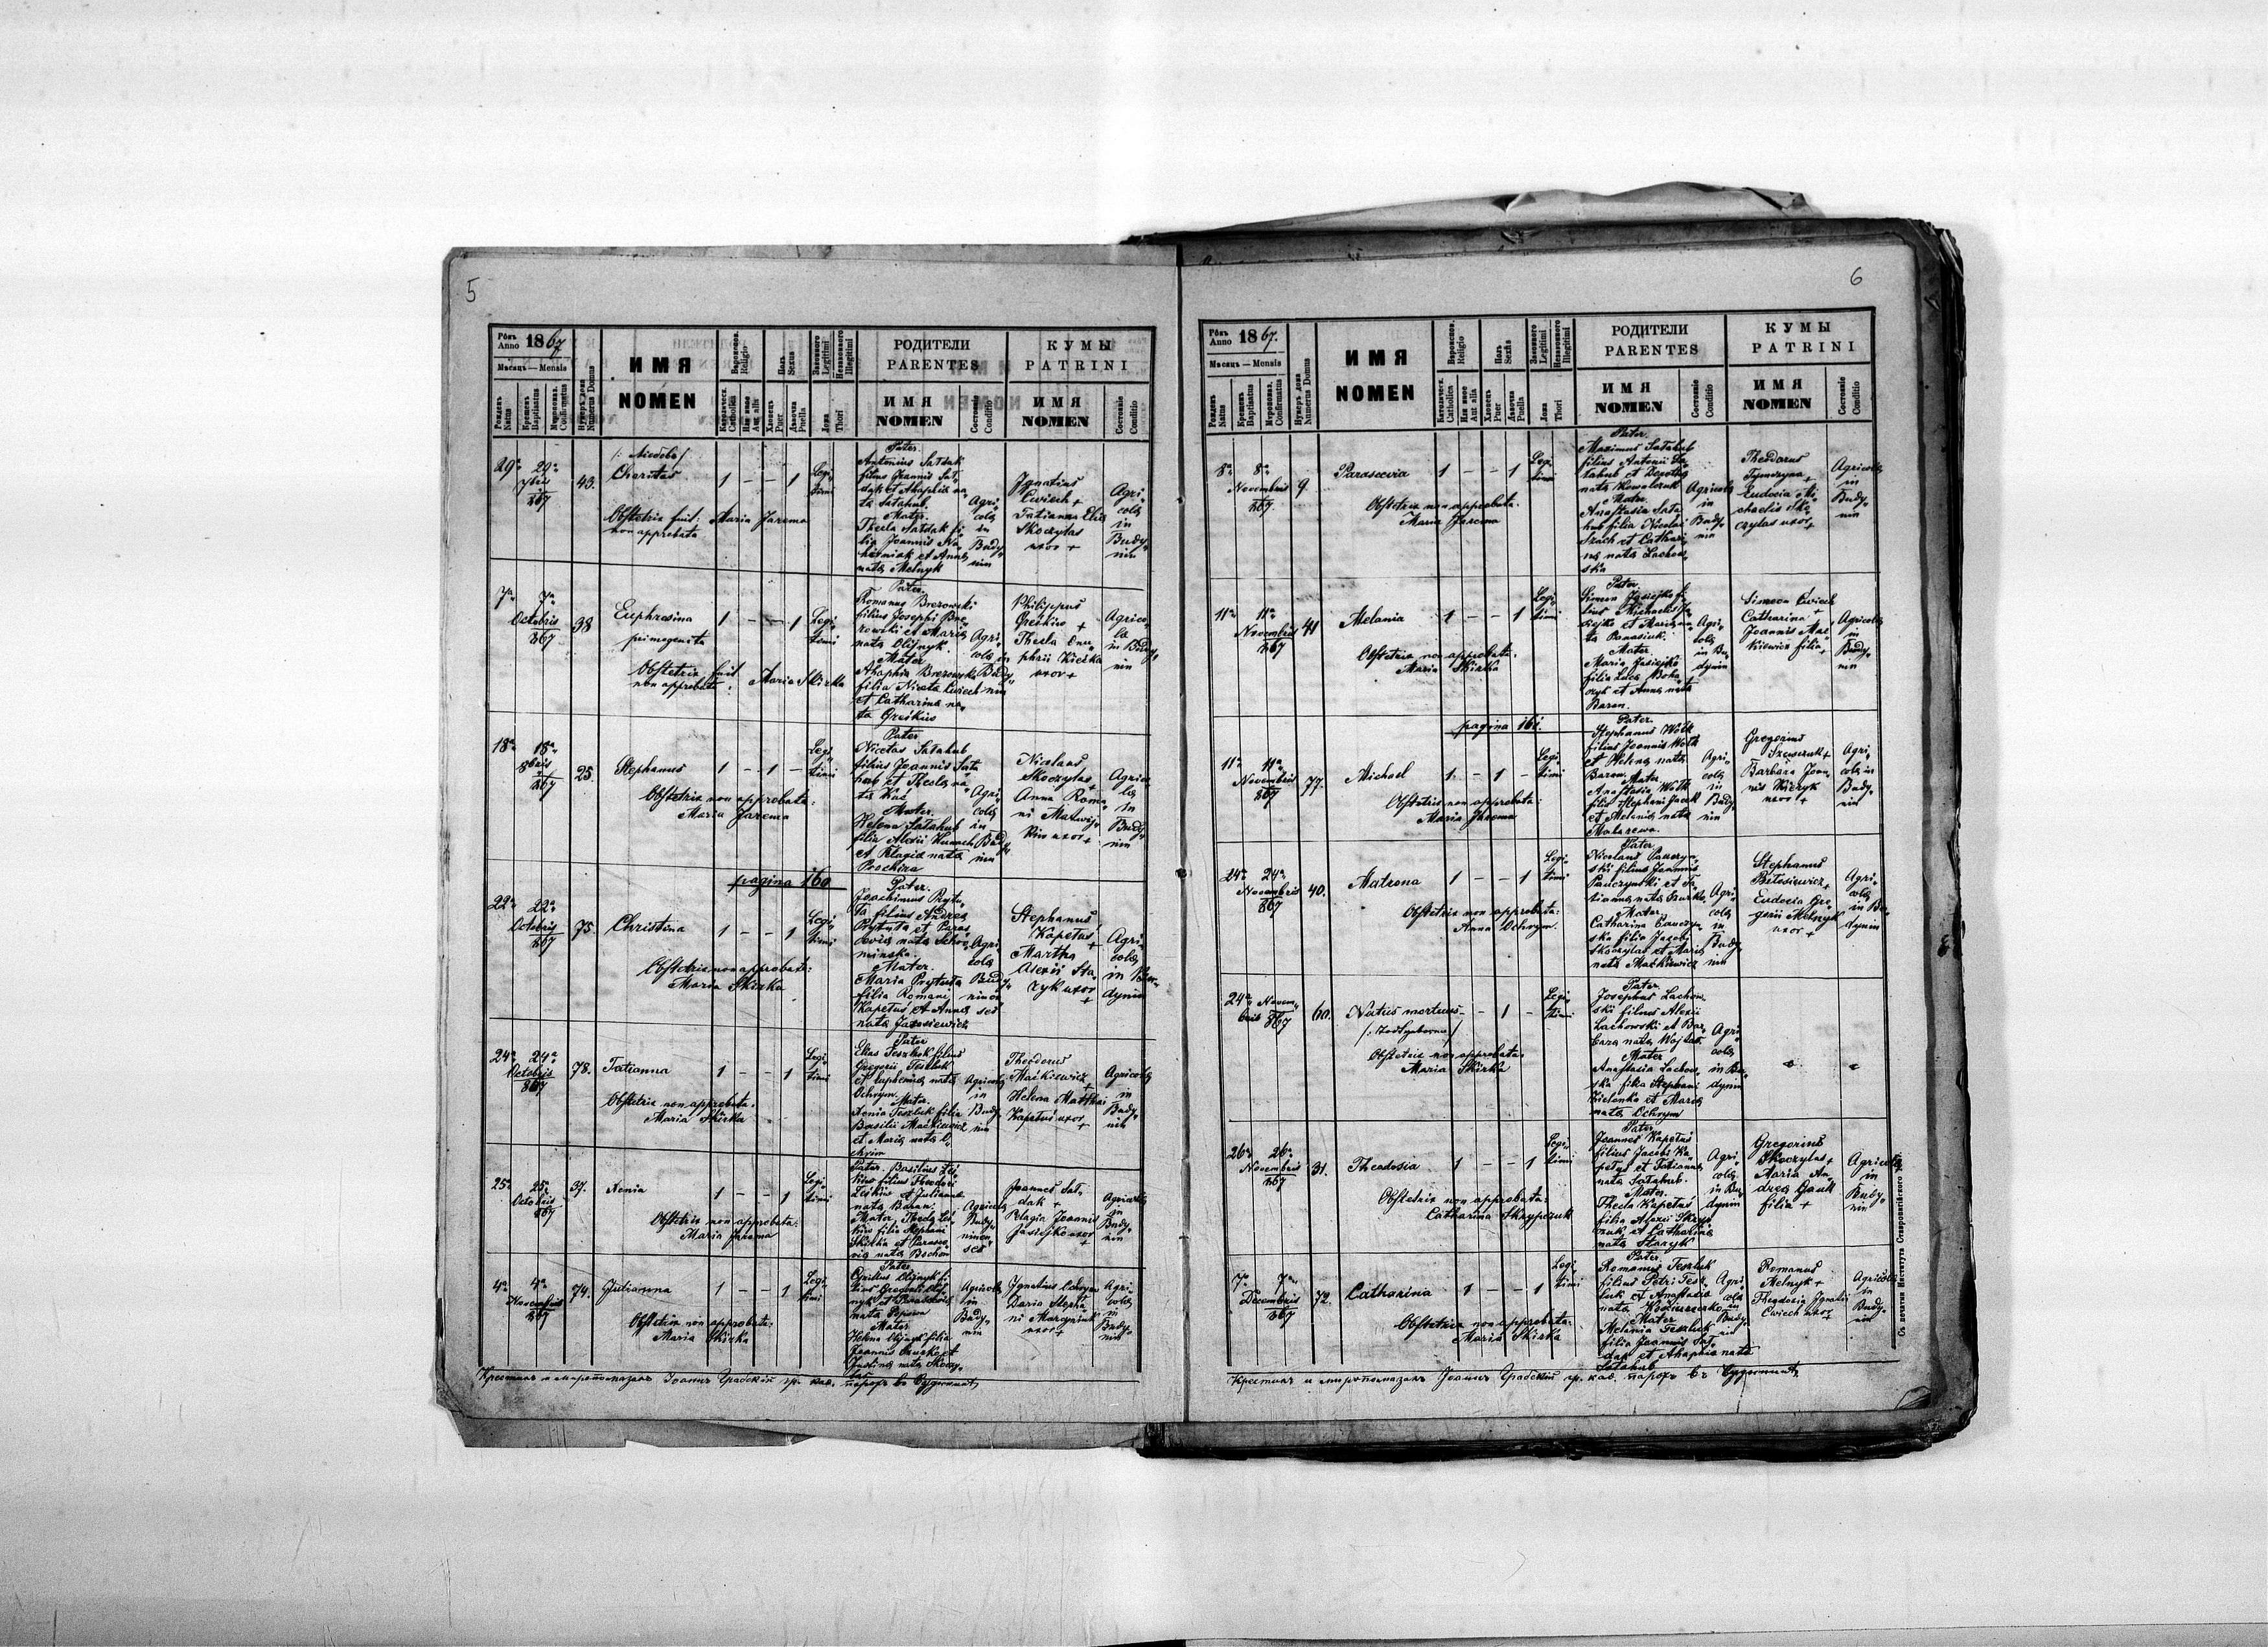 5
Рôкъ Anno 1867
Мѣсяцъ — Mensis
Рожденъ Natus
Крещенъ Baptisatus
Мѵропомаз. Confirmatus
Нумеръ дома Numerus Domus
ИМЯ
NOMEN
Вѣроиспов. Religio
Католическ. Catholica
Или иное Aut alia
Полъ Sexus
Хлопецъ Puer
Дѣвочка Puella
Законного Legitimi
Незаконного Illegitimi
Ложа Thori
РОДИТЕЛИ
PARENTES
ИМЯ
NOMEN
Состояніе Conditio
КУМЫ
PATRINI
ИМЯ
NOMEN
Состояніе Conditio
29a 29a 7bris 867
43.
Charitas
1 – – 1
Legi„
timi
Obstetrix fuit: Maria Jarema
non approbata
Pater.
Antonius Sałdak
filius Joannis Sał„
dak et Ahaphia na„
ta Sałahub.
Mater.
Thecla Sałdak fi„
lia Joannis
et Anna
nata Melnyk
Agri„
cola
in
Budy„
nin
Ignatius
Cwiech +
Tatianna Elia
Skoczylas
uxor +
Agri„
cola
in
Budy„
nin
7a 7a Octobris 867
38
Euphrosina
primogenita
1 – – 1
Legi„
timi
Obstetrix fuit
non approbata: Maria Skirka
Pater.
Romanus Brezowski
filius Josephi Bre„
zowski et Maria
nata Olijnyk.
Mater
Ahaphia Brezowska
filia Niceta Cwiech
et Catharina na„
ta Greskiw
Agri„
cola in
Budy„
nin
Philippus
Greskiw +
Thecla Onu„
phrii Kiczka
uxor +
Agrico„
la
in Budy„
nin
18a 18a 8bris 867
25.
Stephanus
1 – 1 –
Legi„
timi
Obstetrix non approbata:
Maria Jarema
Pater
Nicetas Sałahub
filius Joannis Sała„
hub et Thecla na„
ta Kuś
Mater.
Helena Sałahub
filia Alexii
et Pelagia nata
Prochira
Agri„
cola
in
Budy„
nin
Nicolaus
Skoczylas +
Anna Roma„
ni Matwij„
kiw uxor +
Agrico„
la
in
Budy„
nin
pagina 160
22a 22a Octobris 867
75.
Christina
1 – – 1
Legi„
timi
Obstetrix non approbata:
Maria Skirka
Pater.
Joachimus Pryty„
ła filius Andrea
Prytuła et Paras„
cevia nata
Mater.
Maria Prytuła
filia Romani
Kapetus et Anna
nata Jarosiewicz
Agri„
cola
Budy„
Stephanus
Kapetus +
Martha
Alexii Sta„
ryk uxor
+
Agri„
cola
in Bu„
dynin
24a 24a Octobris 867
78.
Tatianna
1 – – 1
Legi„
timi
Obstetrix non approbata:
Maria Skirka
Pater
Elias Teszluk filius
Gregorii Teszluk
et Euphemia nata
Ochrym.
Mater.
Xenia Teszluk filia
Basilii Maćkiewicz
et Maria nata O„
chrim
Agricola
in
Budy„
nin
Theodorus
Maćkiewicz
+
Helena Matthai
Kapetus uxor
+
Agricola
in
Budy„
nin
25a 25a Octobris 867
37.
Xenia
1 – – 1
Legi„
timi
Obstetrix non approbata:
Maria Jarema
Pater. Basilius Les„
kiw filius Theodori
Leskiw et Julianna
nata Baran.
Mater. Thecla Les„
kiw filia Stephani
Skirka et Parasce„
via nata
Agricola
Budy„
Joannes Sał„
dak +
Pelagia Joannis
Jasiejko uxor
+
Agricola
in
Budy„
nin
4a 4a Novembris 867
74.
Julianna
1 – – 1
Legi„
timi
Obstetrix non approbata:
Maria Skirka
Pater
Cyrillus Olijnyk fi„
lius Gregorii Olij„
nyk et Parascevia
nata
Mater
Helena Olijnyk filia
Joannis Szurko et
Justina nata Skoczy„
las
Agricola
in
Budy„
nin
Ignatius Ochrym
Daria Stepha„
ni Marcyniuk
uxor +
Agri„
cola
in
Budy„
nin
Крестилъ и мѵропомазалъ Іоаннъ Грабскій гр. кат. парохъ въ Будынинѣ
6
Рôкъ Anno 1867.
Мѣсяцъ — Mensis
Рожденъ Natus
Крещенъ Baptisatus
Мѵропомаз. Confirmatus
Нумеръ дома Numerus Domus
ИМЯ
NOMEN
Вѣроиспов. Religio
Католическ. Catholica
Или иное Aut alia
Полъ Sexus
Хлопецъ Puer
Дѣвочка Puella
Законного Legitimi
Незаконного Illegitimi
Ложа Thori
РОДИТЕЛИ
PARENTES
ИМЯ
NOMEN
Состояніе Conditio
КУМЫ
PATRINI
ИМЯ
NOMEN
Состояніе Conditio
8a 8a Novembris 867.
9
Parascevia
1 – – 1
Legi„
timi
Obstetrix non approbata.
Maria Jarema
Pater.
Maximus Sałahub
filius Antonii Sa„
łahub et Dorothea
nata Kowalczuk
Mater.
Anastasia Sała„
hub filia Nicolai
Szach et Cathari„
na nata Lachow„
ska
Agricola
in
Budy„
nin
Theodorus
Tymczyna +
Eudocia Mi„
chaelis Sko„
czylas uxor +
Agricola
in
Budy„
nin
11a 11a Novembris 867
41
Melania
1 – – 1
Legi„
timi
Obstetrix non approbata.
Maria Skirka
Pater.
Simeon Jasiejko fi„
lius Michaelis Ja„
siejko et Maria na„
ta Panasiuk.
Mater
Maria Jasiejko
filia Luca
et Anna nata
Baran.
Agri„
cola
in Bu„
dynin
Simeon Cwiech
+
Catharina
Joannis Mac„
kiewicz filia +
Agricola
in
Budy„
nin
pagina 161.
11a 11a Novembris 867
77.
Michael
1 – 1 –
Legi„
timi
Obstetrix non approbata:
Maria Jarema
Pater.
Stephanus Wołk
filius Joannis Wołk
et Helena nata
Baran.
Mater.
Anastasia Wołk
filia Stephani
et Melania nata
Agri„
cola
in
Budy„
nin
Gregorius
Szewczuk +
Barbara Joan„
nis Kiczyk
uxor +
Agri„
cola in
Budy„
nin
24a 24a Novembris 867
40.
Matrona
1 – – 1
Legi„
timi
Obstetrix non approbata:
Anna Ochrym.
Pater.
Nicolaus Panczyn„
ski filius Joannis
Panczynski et Ta„
tianna nata Szurko.
Mater.
Catharina Panczyn„
ska filia Jacobi
Skoczylas et Maria
nata Maćkiewicz
Agri„
cola
in
Budy„
nin
Stephanus
+
Eudocia Gre„
gorii Melnyk
uxor +
Agri„
cola
in Bu„
dynin
24a Novembris 867
60.
Natus mortuus
– – 1 –
Legi„
timi
Obstetrix non approbata.
Maria Skirka
Pater.
Josephus Lachow„
ski filius Alexii
Lachowski et Bar„
bara nata
Mater
Anastasia Lachow„
ska filia Stephani
Zielenko et Maria
nata Ochrym
Agri„
cola
in Bu„
dynin
26a 26a Novembris 867
31.
Theodosia
1 – – 1
Legi„
timi
Obstetrix non approbata:
Catharina Skrypczuk
Pater.
Joannes Kapetus
filius Jacobi Ka„
petus et Tatianna
nata Sałahub.
Mater.
Thecla Kapetus
filia Alexii
et Catharina
nata Staryk
Agri„
cola
in Bu„
dynin
Gregorius
Skoczylas +
Maria An„
drea Hauk
filia +
Agricola
in
Budy„
nin
7a 7a Decembris 867
72.
Catharina
1 – – 1
Legi„
timi
Obstetrix non approbata:
Maria Skirka
Pater.
Romanus Teszluk
filius Petri Tesz„
luk et Anastasia
nata
Mater
Melania Teszluk
filia Joannis Sał„
dak et Ahaphia nata
Sałahub
Agri„
cola
in
Budy„
nin
Romanus
Melnyk +
Theodosia Ignatii
Cwiech uxor +
Agricola
in
Budy„
nin
Крестилъ и мѵропомазалъ Іоаннъ Грабскій гр. кат. парохъ въ Будынинѣ
Съ печатни Института Ставропигійского